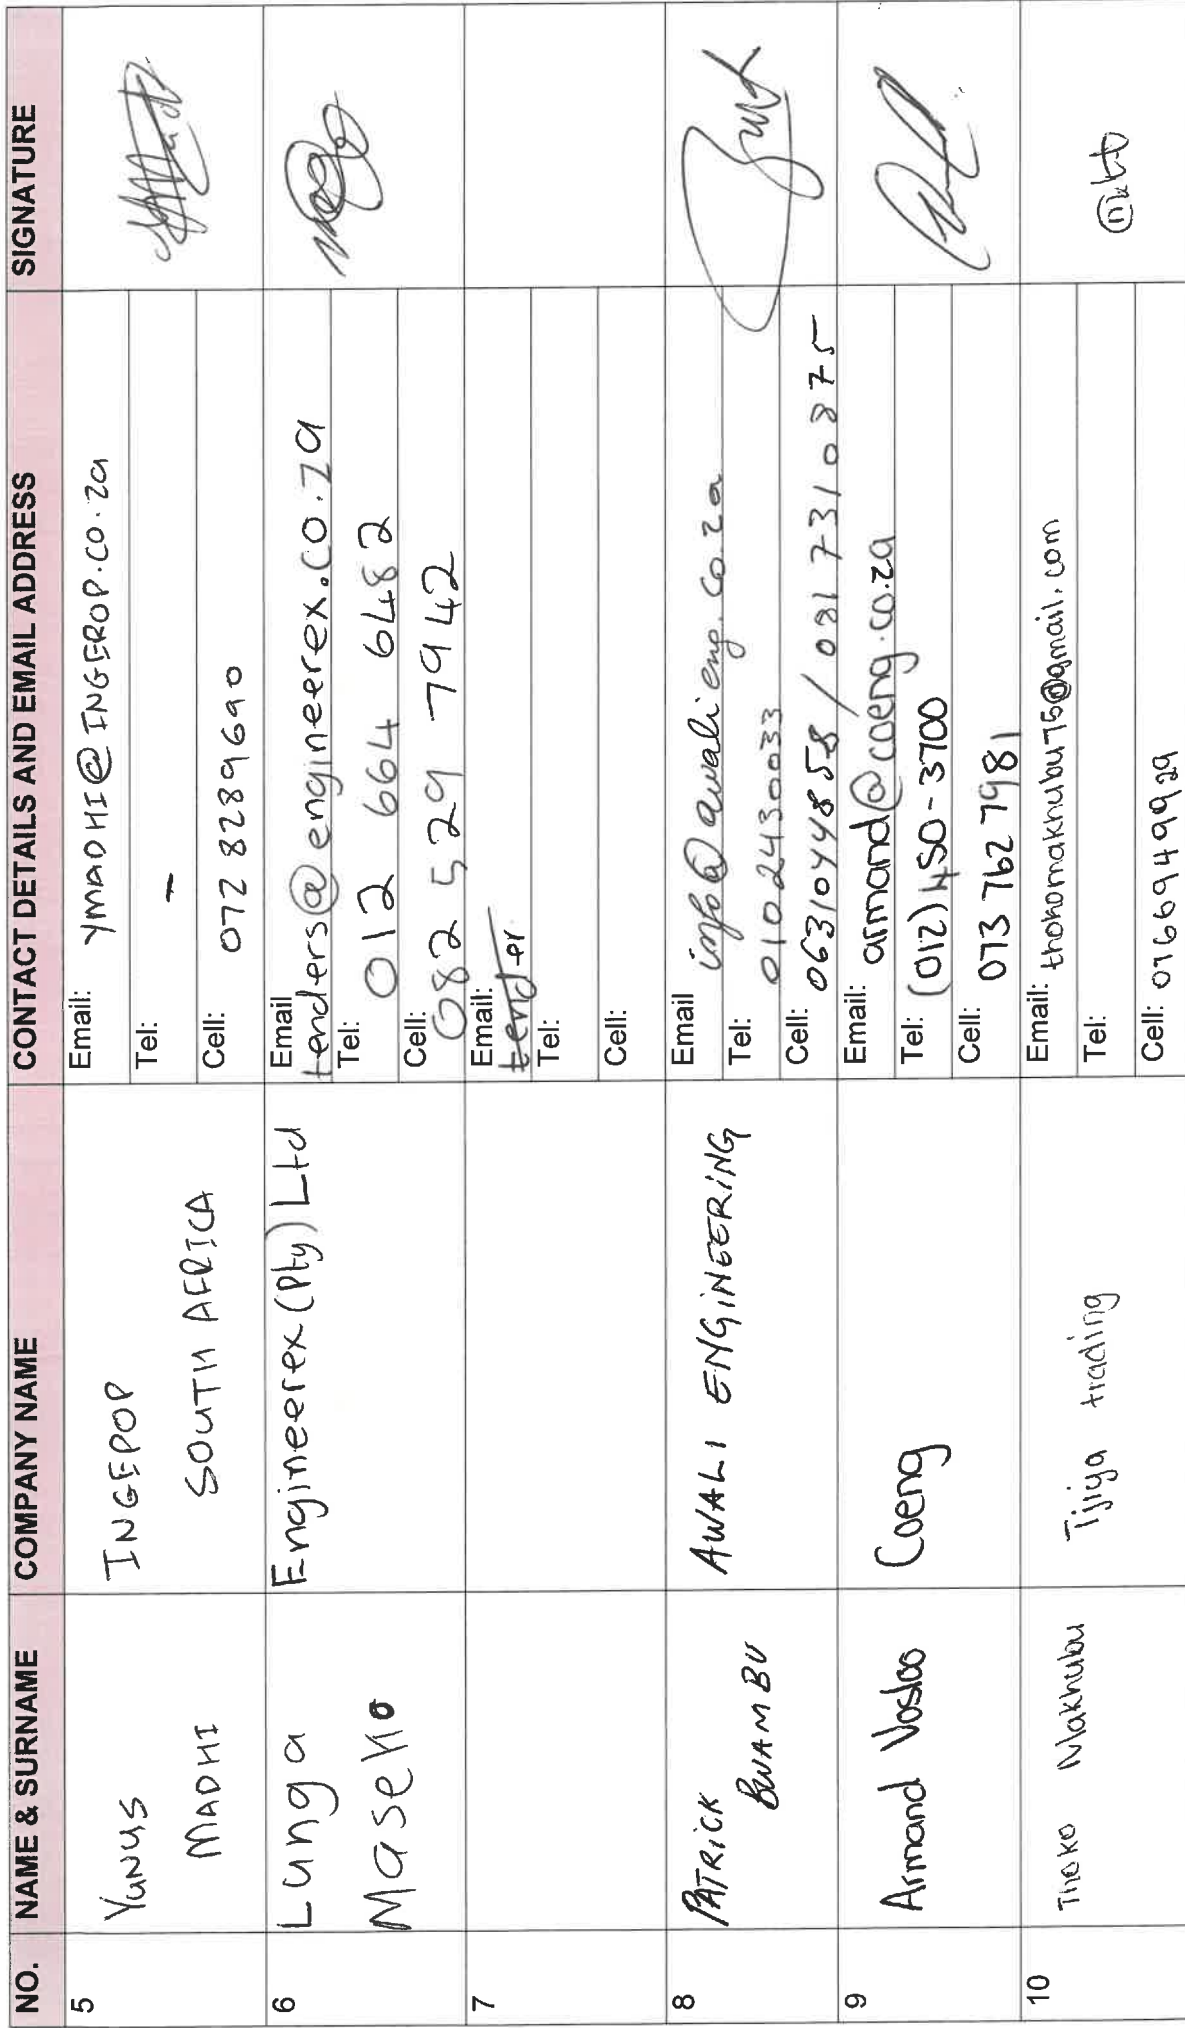 NO. NAME & SURNAME COMPANY NAME CONTACT DETAILS AND EMAIL ADDRESS SIGNATURE
5
Yunus
MADHI
INGEPOP
SOUTH AFRICA
Email: YMADHI@INGEROP.CO.ZA
Tel: -
Cell: 072 8289690
6
Lunga
Maseko
Engineerex (Pty) Ltd
Email
tenders@engineerex.co.za
Tel: 012 664 6482
Cell: 082 529 7942
7
Email:
tender
Tel:
Cell:
8
PATRICK
BWAMBU
AWALI ENGINEERING
Email info@awalieng.co.za
Tel: 0102430033
Cell: 0631044858 / 0817310875
9
Armand Vosloo
Coeng
Email: armand@coeng.co.za
Tel: (012) 450-3700
Cell: 073 762 7981
10
Thoko Makhubu
Tjiya trading
Email: thokomakhubu75@gmail.com
Tel:
Cell: 0766949929